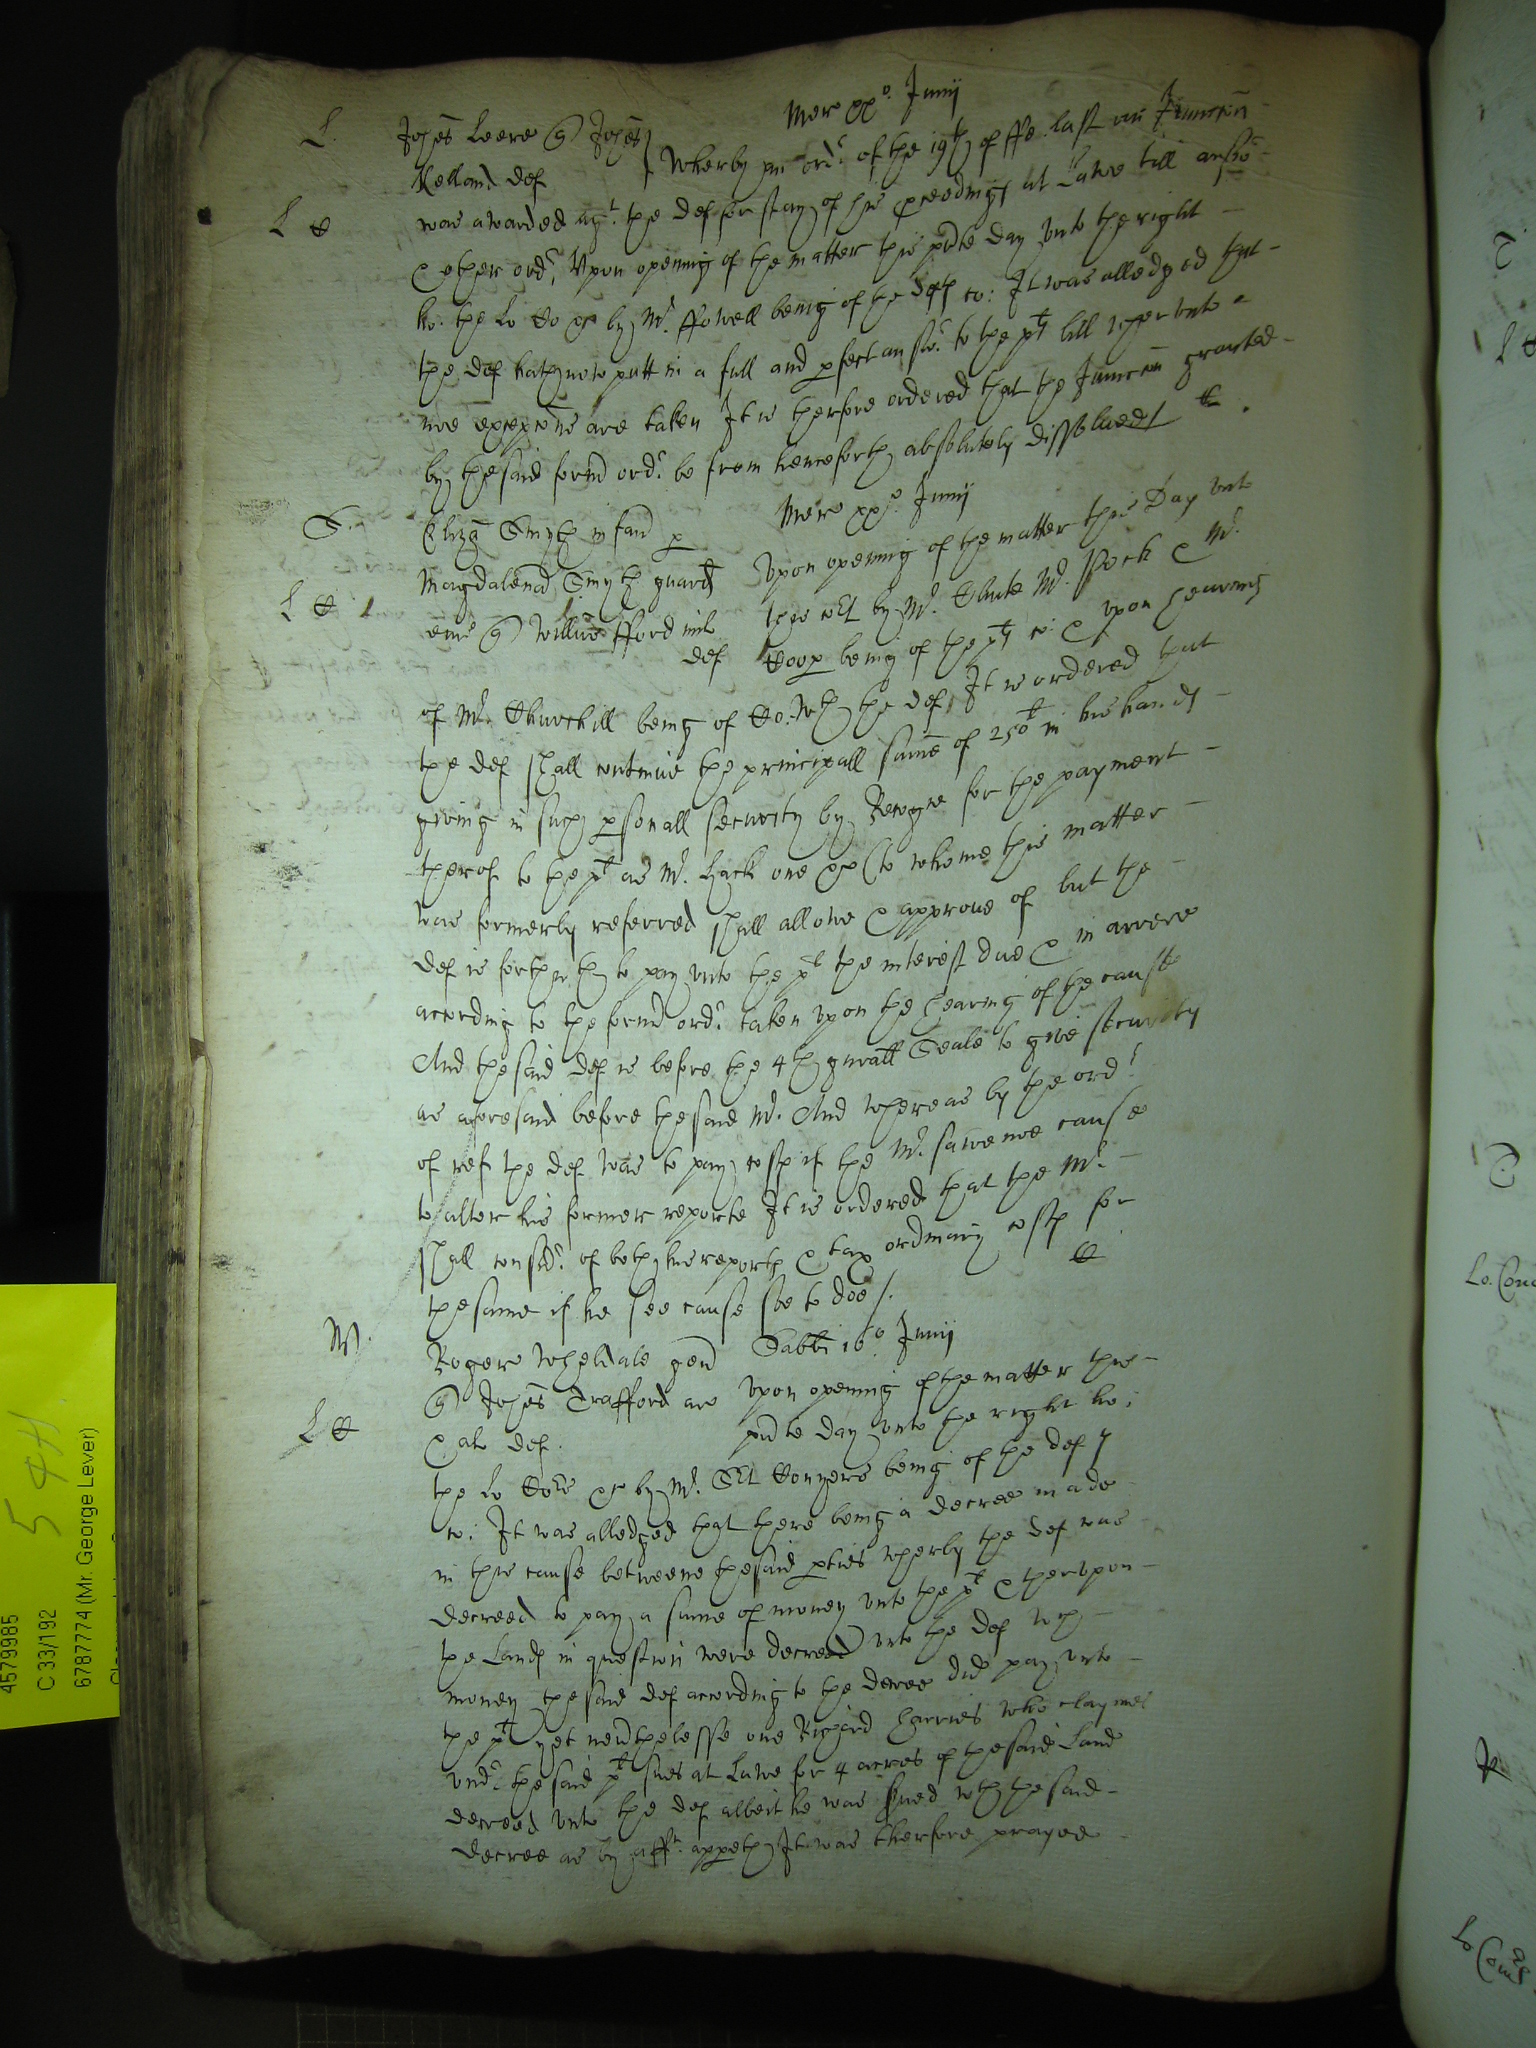 Merc xx.o Junij
L. Johes Leere q Johes Whereby an ordr. of the 19th of ffe. last an Iunccon
Kelland def
L C was awarded agt. the def for stay of his pceedings at Lawe till answ
& other ordr. Upon opening of the matter this pnte day unto the right
ho. the Lo Co &c by Mr. ffowell being of the defts co: It was alledged that
the def hath now putt in a full and pfect answr. to the plt bill wherunto
noe excepcons are taken It is therfore ordered that the Iunccon granted
by the said formr ordr. be from henceforth absolutely dissolued/
Merc xx.o Junij
S. Eliza Smyth infan p
Magdalena Smyth guard Upon opening of the matter this Day unto
L C eius q Willm fford mil this Ct by Mr. Chute Mr. Peck & Mr.
def Coop being of the plts co: & upon hearing
of Mr. Churchill being of Co. wth the def, It is ordered that
the def shall continue the principall sume of 250l in his hands
giving in such psonall security by Recogne for the payment
therof to the plt as Mr. Page one &c (to whome this matter
was formerly referred shall allowe & approue of but the
def is forthwth to pay unto the plt the interest due & in arrere
according to the formr ordr. taken upon the hearing of the cause
And the said def is before the 4th genall Seale to give security
as aforesaid before the said Mr. And whereas by the ordr.
of ref the def was to pay costs if the Mr. sawe noe cause
to alter his former reporte It is ordered that the Mr.
shall consdr. of both his reports & tax ordinary costs for
the same if he see cause soe to doe/.
W. Rogerus Wheldale gen Sabti 16o Junij
q Johes Trafford ar Upon opening of the matter this
L C & al def. pnte day unto the right ho:
the Lo Co &c by Mr. Sct Conyers being of the defs
co: It was alledged that there being a decree made
in this cause betweene the said pties wherby the def was
decreed to pay a sume of money unto the plt & therupon
the Lands in question were decreed unto the def wch
money the said def according to the decree did pay unto
the plt yet neuthelesse one Richard Harries who claymes
undr. the said plt sues at Lawe for 4 acres of the said Land
decreed unto the def albeit he was srued wth the said
decree as by afft. appeth, It was therfore prayed
54H.
4579985
C 33/192
6787774 (Mr. George Lever)